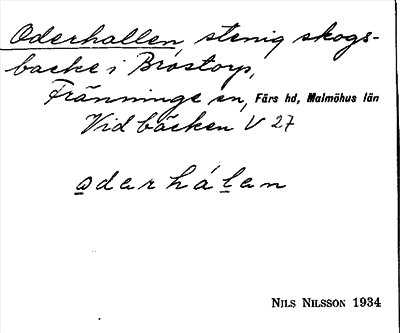 Oderhallen, stenig skogs-
backe i Bröstorp,
Fränninge sn, Färs hd, Malmöhus län
Vid bäcken V 27
o̲darhál̲an
NILS NILSSON 1934